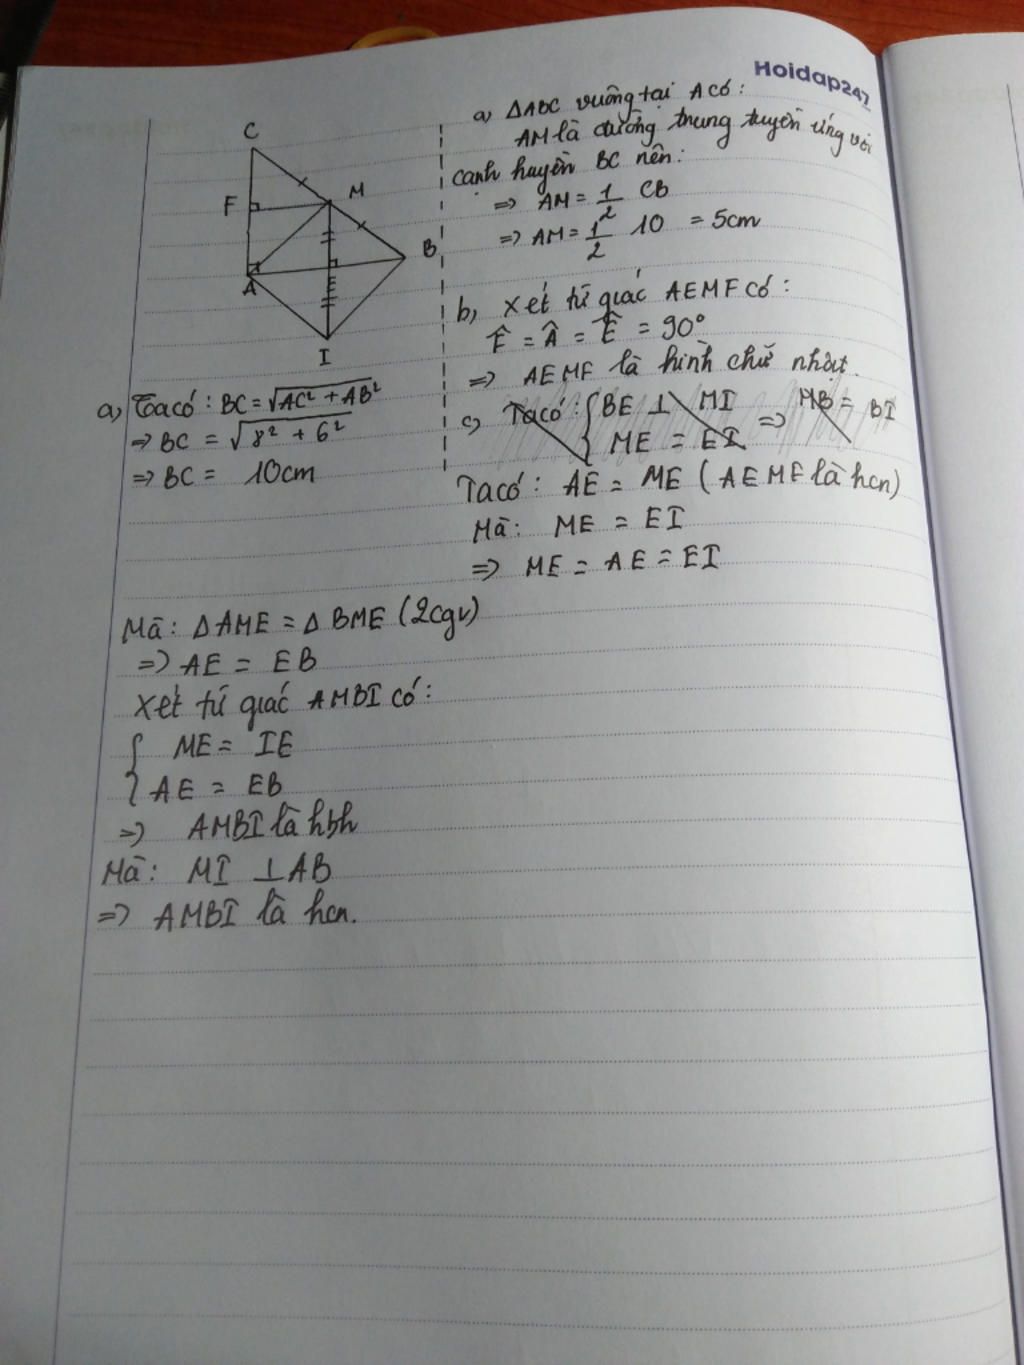 Hoidap247
C
F
M
B
A
E
I
a) Ta có: BC = √AC² + AB²
=> BC = √8² + 6²
=> BC = 10cm
a) ΔABC vuông tại A có:
AM là đường trung tuyến ứng với
cạnh huyền BC nên:
=> AM = 1/2 CB
=> AM = 1/2 10 = 5cm
b, Xét tứ giác AEMF có:
F̂ = Â = Ê = 90°
=> AEMF là hình chữ nhật.
c, Ta có: { BE ⊥ MI => MB = BI
ME = EI
Ta có: AE = ME (AEMF là hcn)
Mà: ME = EI
=> ME = AE = EI
Mà: ΔAME = ΔBME (2cgv)
=> AE = EB
Xét tứ giác AMBI có:
{ ME = IE
AE = EB
=> AMBI là hbh
Mà: MI ⊥ AB
=> AMBI là hcn.